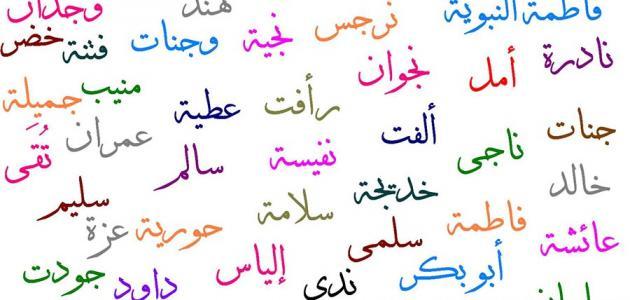 فاطمة النبوية هند وجدان
نادرة أمل نجوان نرجس نجية وجنات فتنة خضر
جنات ألفت رأفت عطية منيب جميلة
ناجى نفيسة سالم عمران تُقَى
خالد خديجة سلامة سليم
عائشة فاطمة سلمى حورية عزة
أبو بكر ندى إلياس داود جودت